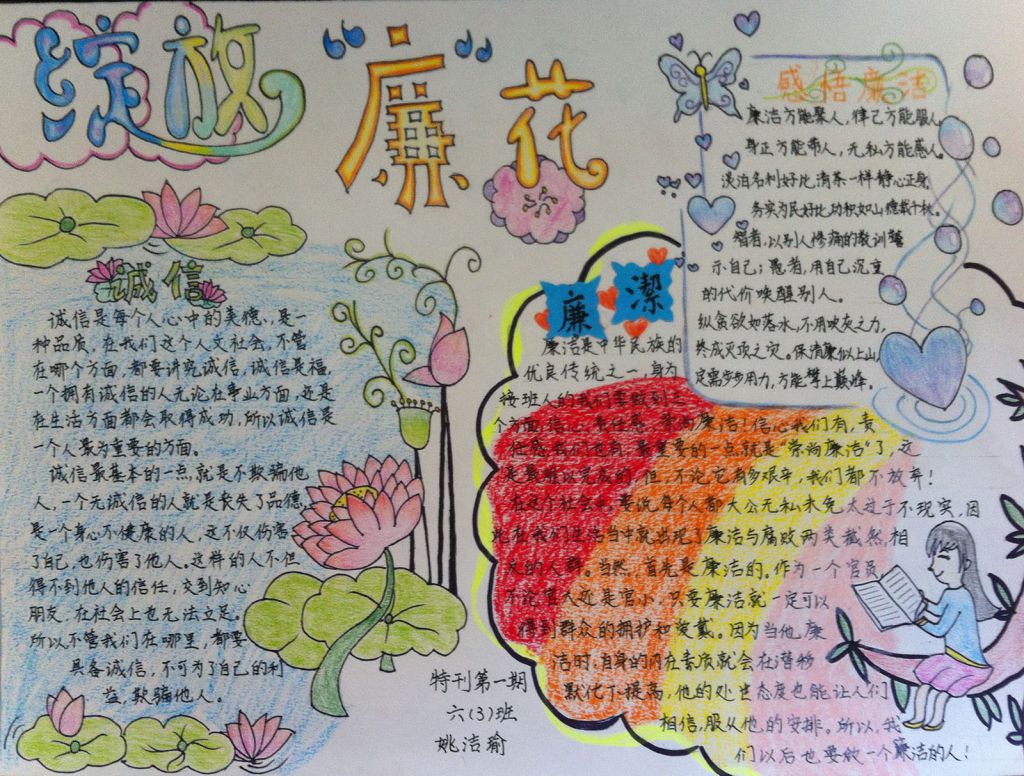 绽放“廉”花
诚信
诚信是每个人心中的美德,是一
种品质,在我们这个人文社会,不管
在哪个方面,都要讲究诚信,诚信是福,
一个拥有诚信的人无论在事业方面,还是
在生活方面都会取得成功,所以诚信是
一个人最为重要的方面。
诚信最基本的一点,就是不欺骗他
人,一个无诚信的人就是丧失了品德,
是一个身心不健康的人,这不仅伤害
了自己,也伤害了他人。这样的人不但
得不到他人的信任,交到知心
朋友,在社会上也无法立足。
所以不管我们在哪里,都要
具备诚信,不可为了自己的利
益,欺骗他人。
特刊第一期
六(3)班
姚洁瑜
感悟廉洁
廉洁方能聚人,律己方能服人。
身正方能带人,无私方能感人。
淡泊名利好比清茶一样静心正身,
务实为民好比功积如山德载千秋。
智者,以别人惨痛的教训警
示自己;愚者,用自己沉重
的代价唤醒别人。
纵贪欲如落水,不用吹灰之力,
终成灭顶之灾。保清廉似上山,
定需步步用力,方能攀上巅峰。
廉潔
廉洁是中华民族的
优良传统之一,身为
接班人的我们要做到三
个方面:信心,责任感,崇尚廉洁!信心我们有,责
任感我们也有,最重要的一点就是“崇尚廉洁”了,这
是最难以完成的,但,不论它有多艰辛,我们都不放弃!
在这个社会中,要说每个人都大公无私未免太过于不现实,因
此在我们生活当中就出现了廉洁与腐败两类截然相
反的人群。当然,首先是廉洁的。作为一个官员,
不论官大还是官小,只要廉洁就一定可以
得到群众的拥护和爱戴。因为当他廉
洁时,自身的内在素质就会在潜移
默化下提高,他的处世态度也能让人们
相信,服从他的安排。所以,我
们以后也要做一个廉洁的人!